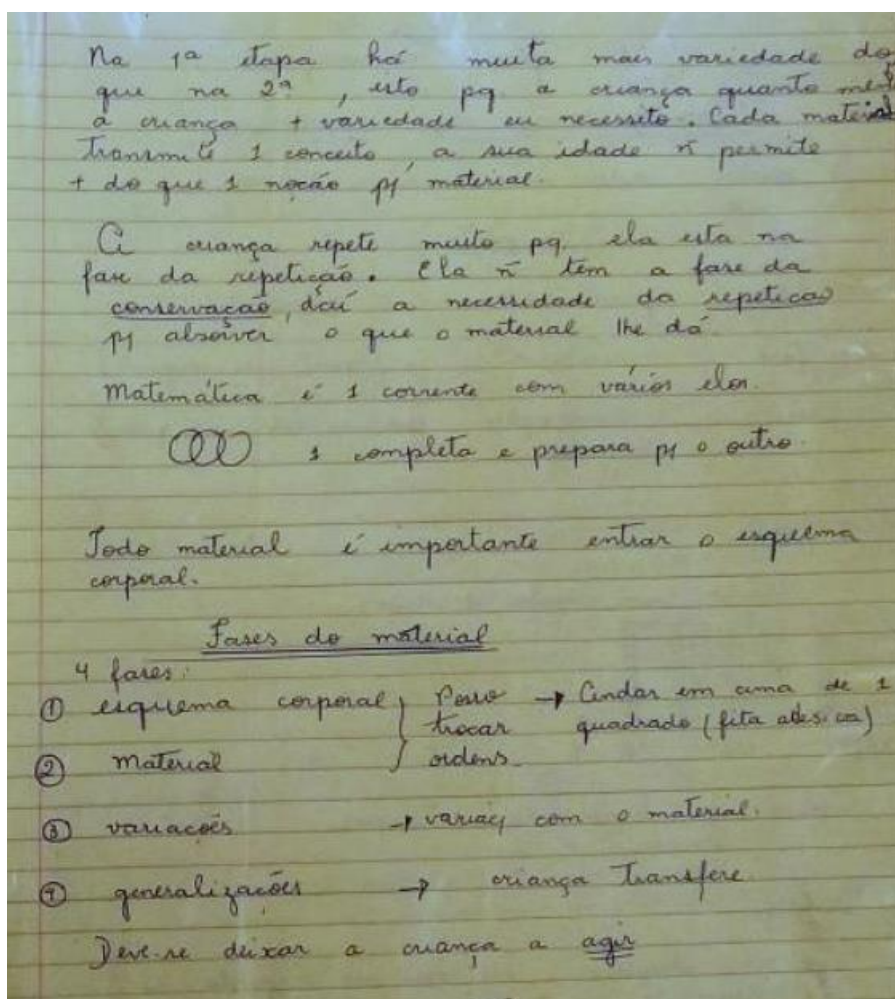 Na 1ª etapa há muita mais variedade do
que na 2ª, isto pq a criança quanto
a criança + variedade eu necessito. Cada material
transmite 1 conceito, a sua idade ñ permite
+ do que 1 noção p/ material.
A criança repete muito pq. ela esta na
fase da repetição. Ela ñ tem a fase da
conservação, daí a necessidade da repeticao
p/ absorver o que o material lhe dá.
Matemática é 1 corrente com vários elos.
1 completa e prepara p/ o outro.
Todo material é importante entrar o esquema
corporal.
Fases do material
4 fases:
① esquema corporal } Posso → Andar em cima de 1
trocar quadrado (fita adesiva)
② material ordens.
③ variações → variaç com o material.
④ generalizações → criança transfere.
Deve-se deixar a criança a agir